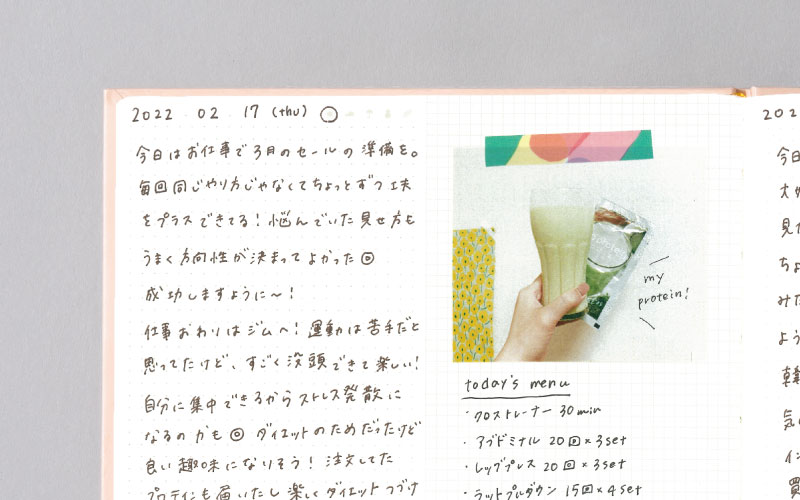 2022 . 02 . 17 (thu)
今日はお仕事で3月のセールの準備を。
毎回同じやり方じゃなくてちょっとずつ工夫
をプラスできてる！悩んでいた見せ方も
うまく方向性が決まってよかった◎
成功しますように〜！
仕事おわりはジムへ！運動は苦手だと
思ってたけど、すごく没頭できて楽しい！
自分に集中できるからストレス発散に
なるのかも◎ダイエットのためだったけど
良い趣味になりそう！注文してた
プロテインも届いたし楽しくダイエットつづけ
my
protein!
today's menu
・クロストレーナー 30min
・アブドミナル 20回×3set
・レッグプレス 20回×3set
・ラットプルダウン 15回×4set
202
今日
大好
見た
ちょ
みた
よう
韓
気
イン
買